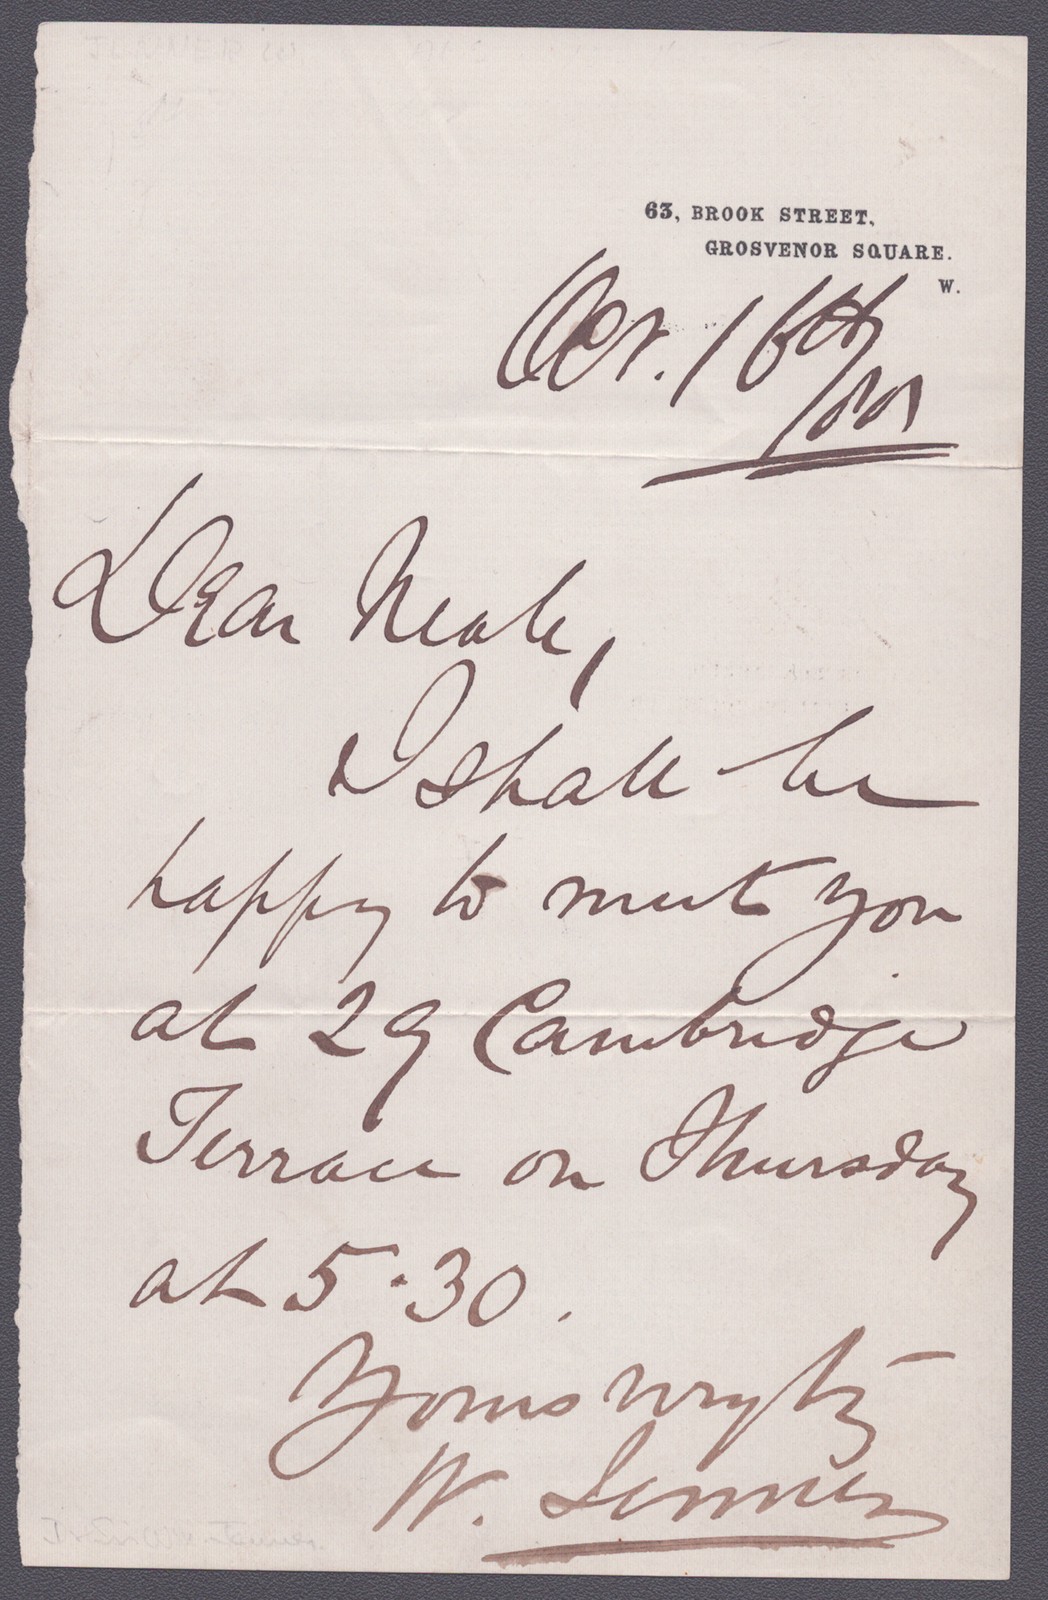 63, BROOK STREET,
GROSVENOR SQUARE.
W.
Oct. 16th
Dear Neale,
I shall be
happy to meet you
at 29 Cambridge
Terrace on Thursday
at 5.30.
Yours vry tly
W. Jenner